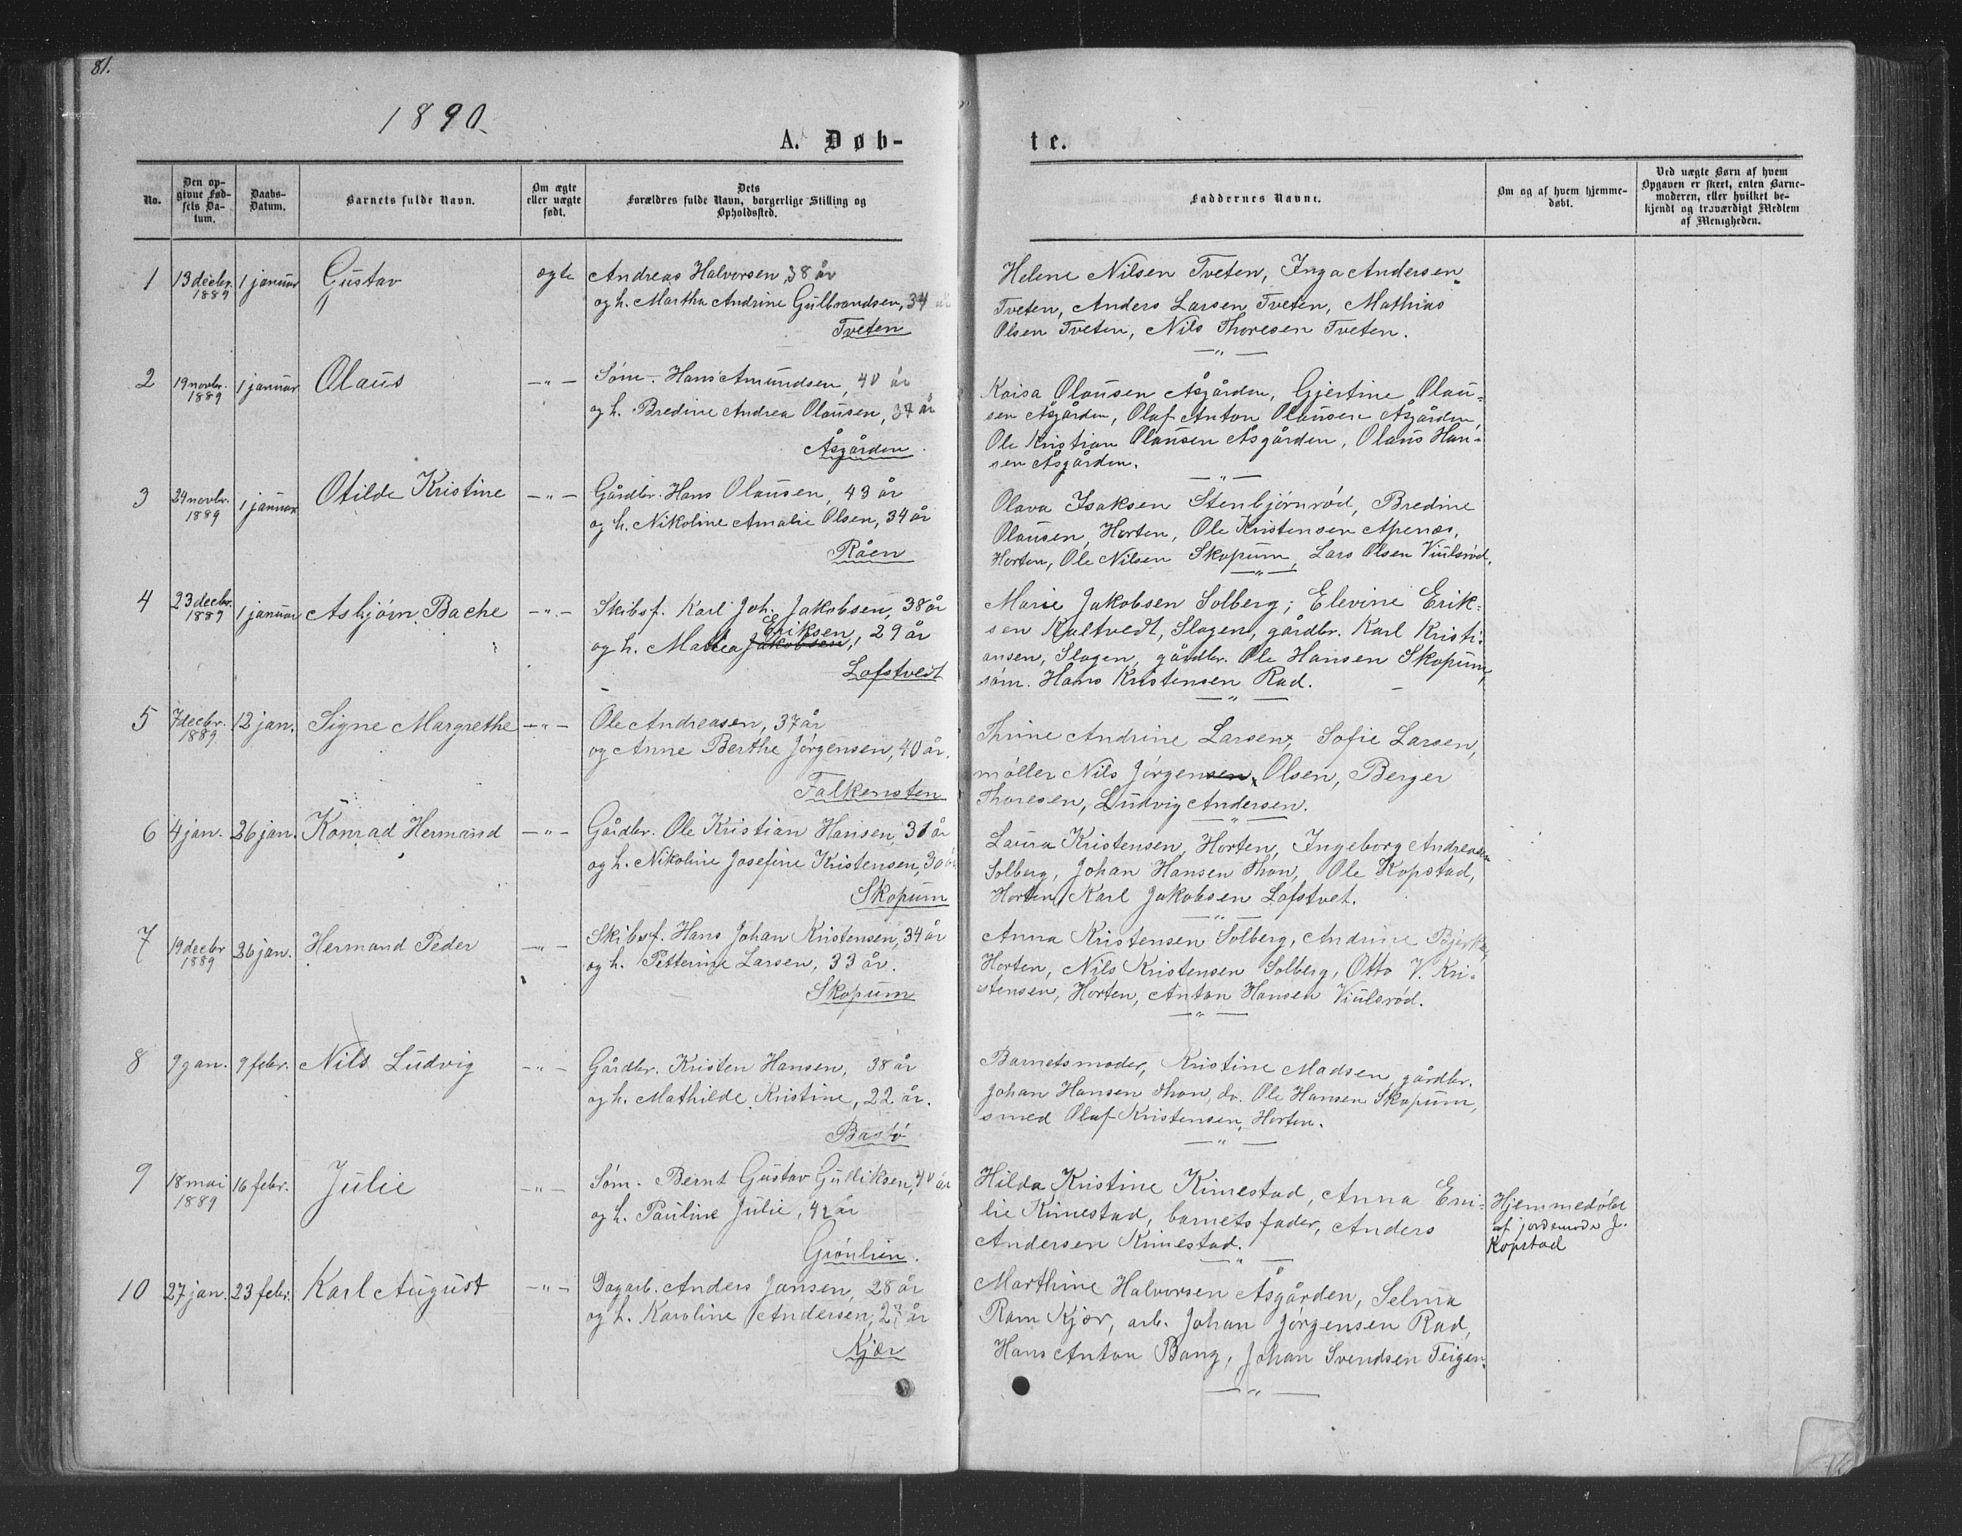 81.
1890.
A. Døb-
te.
No.
Den op-
givne Fød-
sels Da-
tum.
Daabs-
Datum.
Barnets fulde Navn.
Om ægte
eller uægte
født.
Dets
Forældres fulde Navn, borgerlige Stilling og
Opholdssted.
Faddernes Navne.
Om og af hvem hjemme-
døbt.
Ved uægte Børn af hvem
Opgaven er skeet, enten Barne-
moderen, eller hvilket be-
kjendt og troværdigt Medlem
af Menigheden.
1 13 decbr. 1889 1 januar Gustav ægte Andreas Halvorsen, 38 år
og h. Martha Andrine Gulbrandsen, 34 år
Tveten
Helene Nilsen Tveten, Inga Andersen
Tveten, Anders Larsen Tveten, Mathias
Olsen Tveten, Nils Thoresen Tveten.
—"—
2 19 novbr. 1889 1 januar Olaus —"— Søm. Hans Amundsen, 40 år
og h. Bredine Andrea Olausen, 37 år
Åsgården.
Kaisa Olausen Åsgården, Gjertine Olau-
sen Åsgården, Olaf Anton Olausen Åsgården,
Ole Kristian Olausen Åsgården, Olaus Han-
sen Åsgården.
—"—
3 24 novbr. 1889 1 januar Otilde Kristine —"— Gårdbr. Hans Olausen, 43 år
og h. Nikoline Amalie Olsen, 34 år
Råen
Olava Isaksen Stenbjörnröd, Bredine
Olausen, Horten, Ole Kristensen Apenæs,
Horten, Ole Nilsen Skopum, Lars Olsen Viulsröd.
—"—
4 23 decbr. 1889 1 januar Asbjörn Bache —"— Skibsf. Karl Joh. Jakobsen, 38 år
Eriksen
og h. Mathea Jakobsen, 29 år
Lofstvedt
Marie Jakobsen Solberg, Elevine Erik-
sen Kaltvedt, Slagen, gårdbr. Karl Kristi-
ansen, Slagen, gårdbr. Ole Hansen Skopum,
søm. Hans Kristensen Rad.
—"—
5 7 decbr. 1889 12 jan. Signe Margrethe —"— Ole Andreasen, 37 år
og Anne Berthe Jørgensen, 40 år.
Falkensten
Thrine Andrine Larsen, Sofie Larsen,
møller Nils Jørgensen Olsen, Berger
Thoresen, Ludvig Andersen.
—"—
6 4 jan. 26 jan. Konrad Hermand —"— Gårdbr. Ole Kristian Hansen, 31 år
og h. Nikoline Josefine Kristensen, 30 år
Skopum
Laura Kristensen, Horten, Ingeborg Andreasen
Solberg, Johan Hansen Thon, Ole Kopstad,
Horten, Karl Jakobsen Lofstvet.
—"—
7 19 decbr 1889 26 jan. Hermand Peder —"— Skibsf. Hans Johan Kristensen, 34 år
og h. Petterine Larsen, 33 år.
Skopum
Anna Kristensen Solberg, Andrine Bjerke,
Horten, Nils Kristensen Solberg, Otto V. Kri-
stensen, Horten, Anton Hansen Viulsröd.
—"—
8 9 jan. 9 febr. Nils Ludvig —"— Gårdbr. Kristen Hansen, 38 år
og h. Mathilde Kristine, 22 år.
Bastö
Barnets moder, Kristine Madsen, gårdbr.
Johan Hansen Thon, do. Ole Hansen Skopum,
smed Olaf Kristensen, Horten.
—"—
9 18 mai 1889 16 febr. Julie —"— Søm. Bernt Gustav Gulliksen, 40 år
og h. Pauline Julie, 42 år
Grönlien.
Hilda Kristine Kimestad, Anna Emi-
lie Kimestad, barnets fader, Anders
Andersen Kimestad.
—"—
Hjemmedøbt
af jordemode J.
Kopstad
10 27 jan. 23 febr. Karl August —"— Dagarb. Anders Jansen, 28 år
og h. Karoline Andersen, 27 år
Kjær
Marthine Halvorsen Åsgården, Selma
Ram Kjær, arb. Johan Jørgensen Rad,
Hans Anton Bang, Johan Svendsen Teigen.
—"—